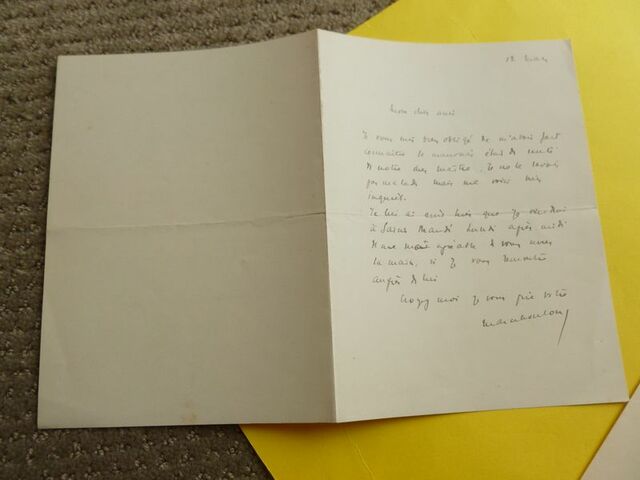 12 Mars
Mon cher ami
Je vous suis bien obligé de m'avoir fait
connaître le mauvais état de santé
de notre cher maître. Je ne le savais
pas malade mais me voici bien
inquiet.
Je lui ai écrit hier que je viendrai
à Saint Mandé Lundi après midi
Il me serait agréable de vous serrer
la main, si je vous rencontrais
auprès de lui
Croyez moi je vous prie votre